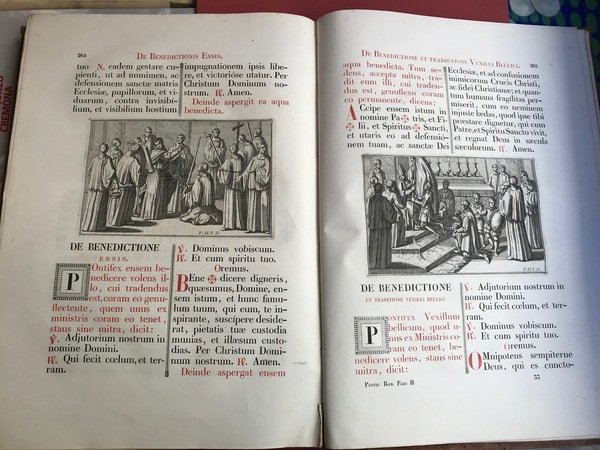 264
DE BENEDICTIONIS ENSIS.
tuo N. eadem gesture cu-
pienti, ut ad munimen, ac
defensionem sanctæ matris
Ecclesiæ, pupillorum, et vi-
duarum, contra invisibi-
lium, et visibilium hostium
impugnationem ipsis libe-
re, et victorióse utatur. Per
Christum Dominum no-
strum. ℟. Amen.
Deinde aspergit ea aqua
benedicta.
P. II. F. 53
DE BENEDICTIONE
ENSIS.
POntifex ensem be-
nedicere volens il-
lo, cui tradendus
est, coram eo genu-
flectente, quem unus ex
ministris coram eo tenet,
stans sine mitra, dicit:
℣. Adjutorium nostrum in
nomine Domini.
℟. Qui fecit cœlum, et ter-
ram.
℣. Dominus vobiscum.
℟. Et cum spiritu tuo.
Oremus.
BEne ✠ dicere digneris,
quæsumus, Domine, en-
sem istum, et hunc famu-
lum tuum, qui eum, te in-
spirante, suscipere deside-
rat, pietatis tuæ custodia
munias, et illæsum custo-
dias. Per Christum Domi-
num nostrum. ℟. Amen.
Deinde aspergat ensem
DE BENEDICTIONE ET TRADITIONE VEXILLI BELLICI.
265
aqua benedicta. Tum se-
dens, accepta mitra, tra-
dit eum illi, cui traden-
dus est, genuflexo coram
eo permanente, dicens:
ACcipe ensem istum in
nomine Pa ✠ tris, et Fi-
✠ lii, et Spiritus ✠ Sancti,
et utaris eo ad defensió-
nem tuam, ac sanctæ Dei
Ecclesiæ, et ad confusionem
inimicorum Crucis Christi,
ac fidei Christianæ; et quan-
tum humana fragilitas per-
miserit, cum eo neminem
injuste lædas, quod ipse tibi
præstare dignetur, qui cum
Patre, et Spiritu Sancto vivit,
et regnat Deus in sæcula
sæculorum. ℟. Amen.
DE BENEDICTIONE
ET TRADITIONE VEXILLI BELLICI
PONTIFEX Vexillum
bellicum, quod u-
nus ex Ministris co-
ram eo tenet, be-
nedicere volens, stans sine
mitra, dicit:
PONTIF. ROM. PARS II.
℣. Adjutorium nostrum in
nomine Domini.
℟. Qui fecit cœlum, et ter-
ram.
℣. Dominus vobiscum.
℟. Et cum spiritu tuo.
Oremus.
OMnipotens sempiterne
Deus, qui es cuncto-
33
CREMONA